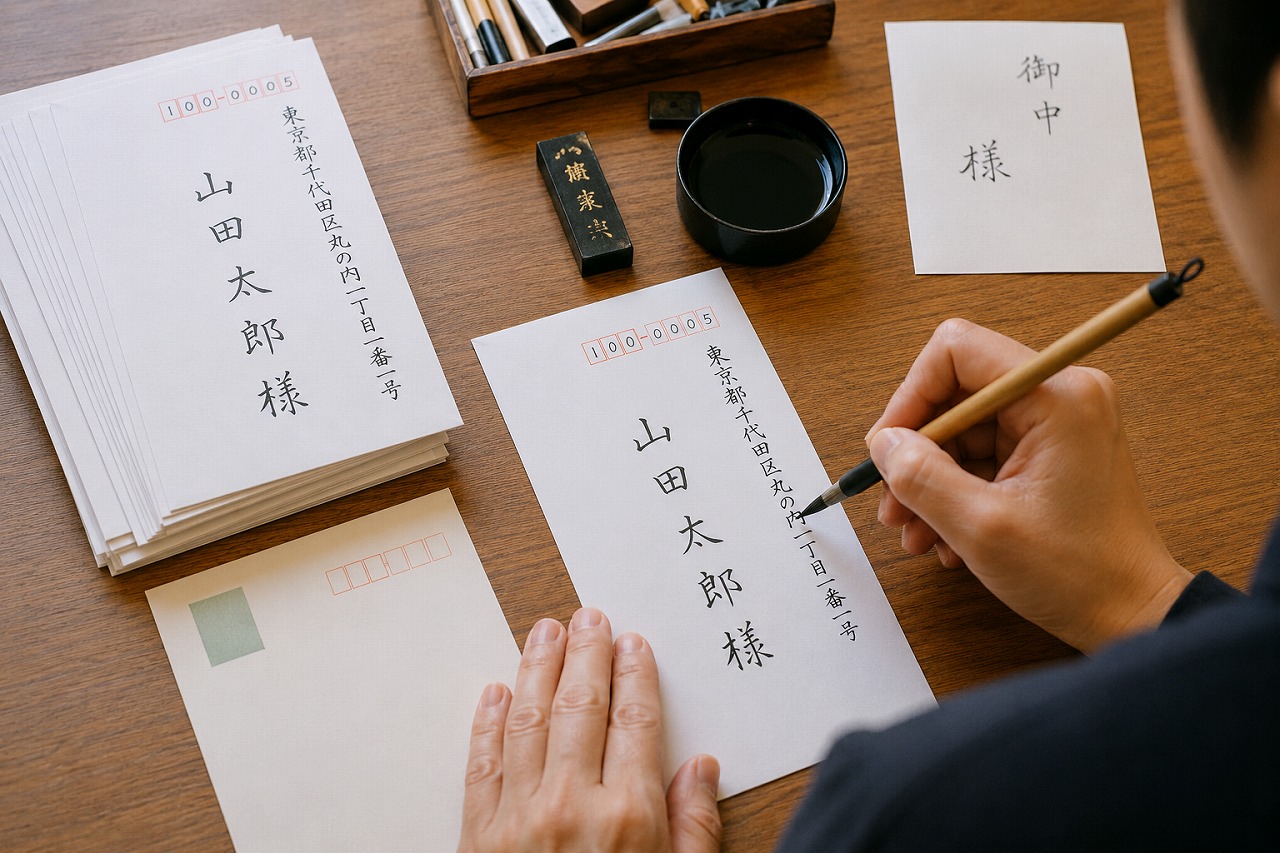 100-0005
東京都千代田区丸の内一丁目一番一号
山田太郎様
100-0005
東京都千代田区丸の内一丁目一番一号
山田太郎様
御中
様